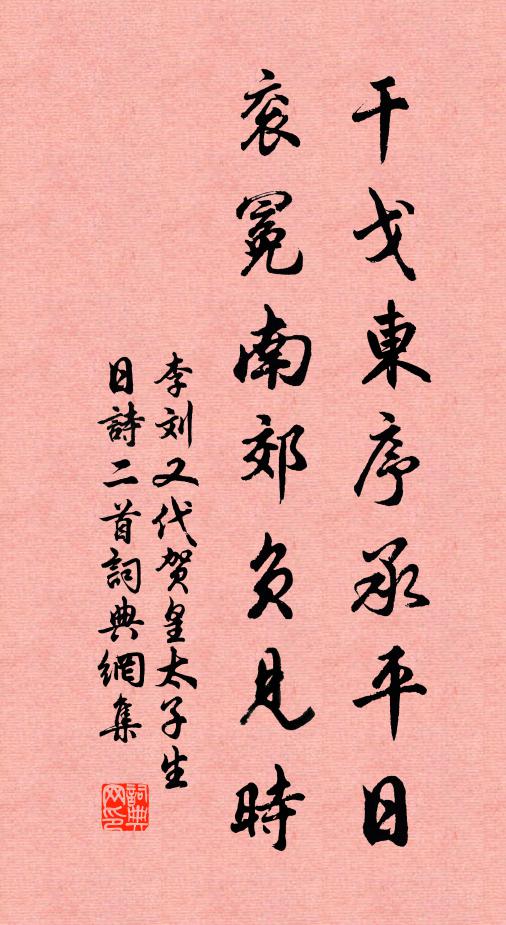 干戈東序承平日
衮冕南郊負見時
李刘又代贺皇太子生
日詩二首詞典網集
詞典网印